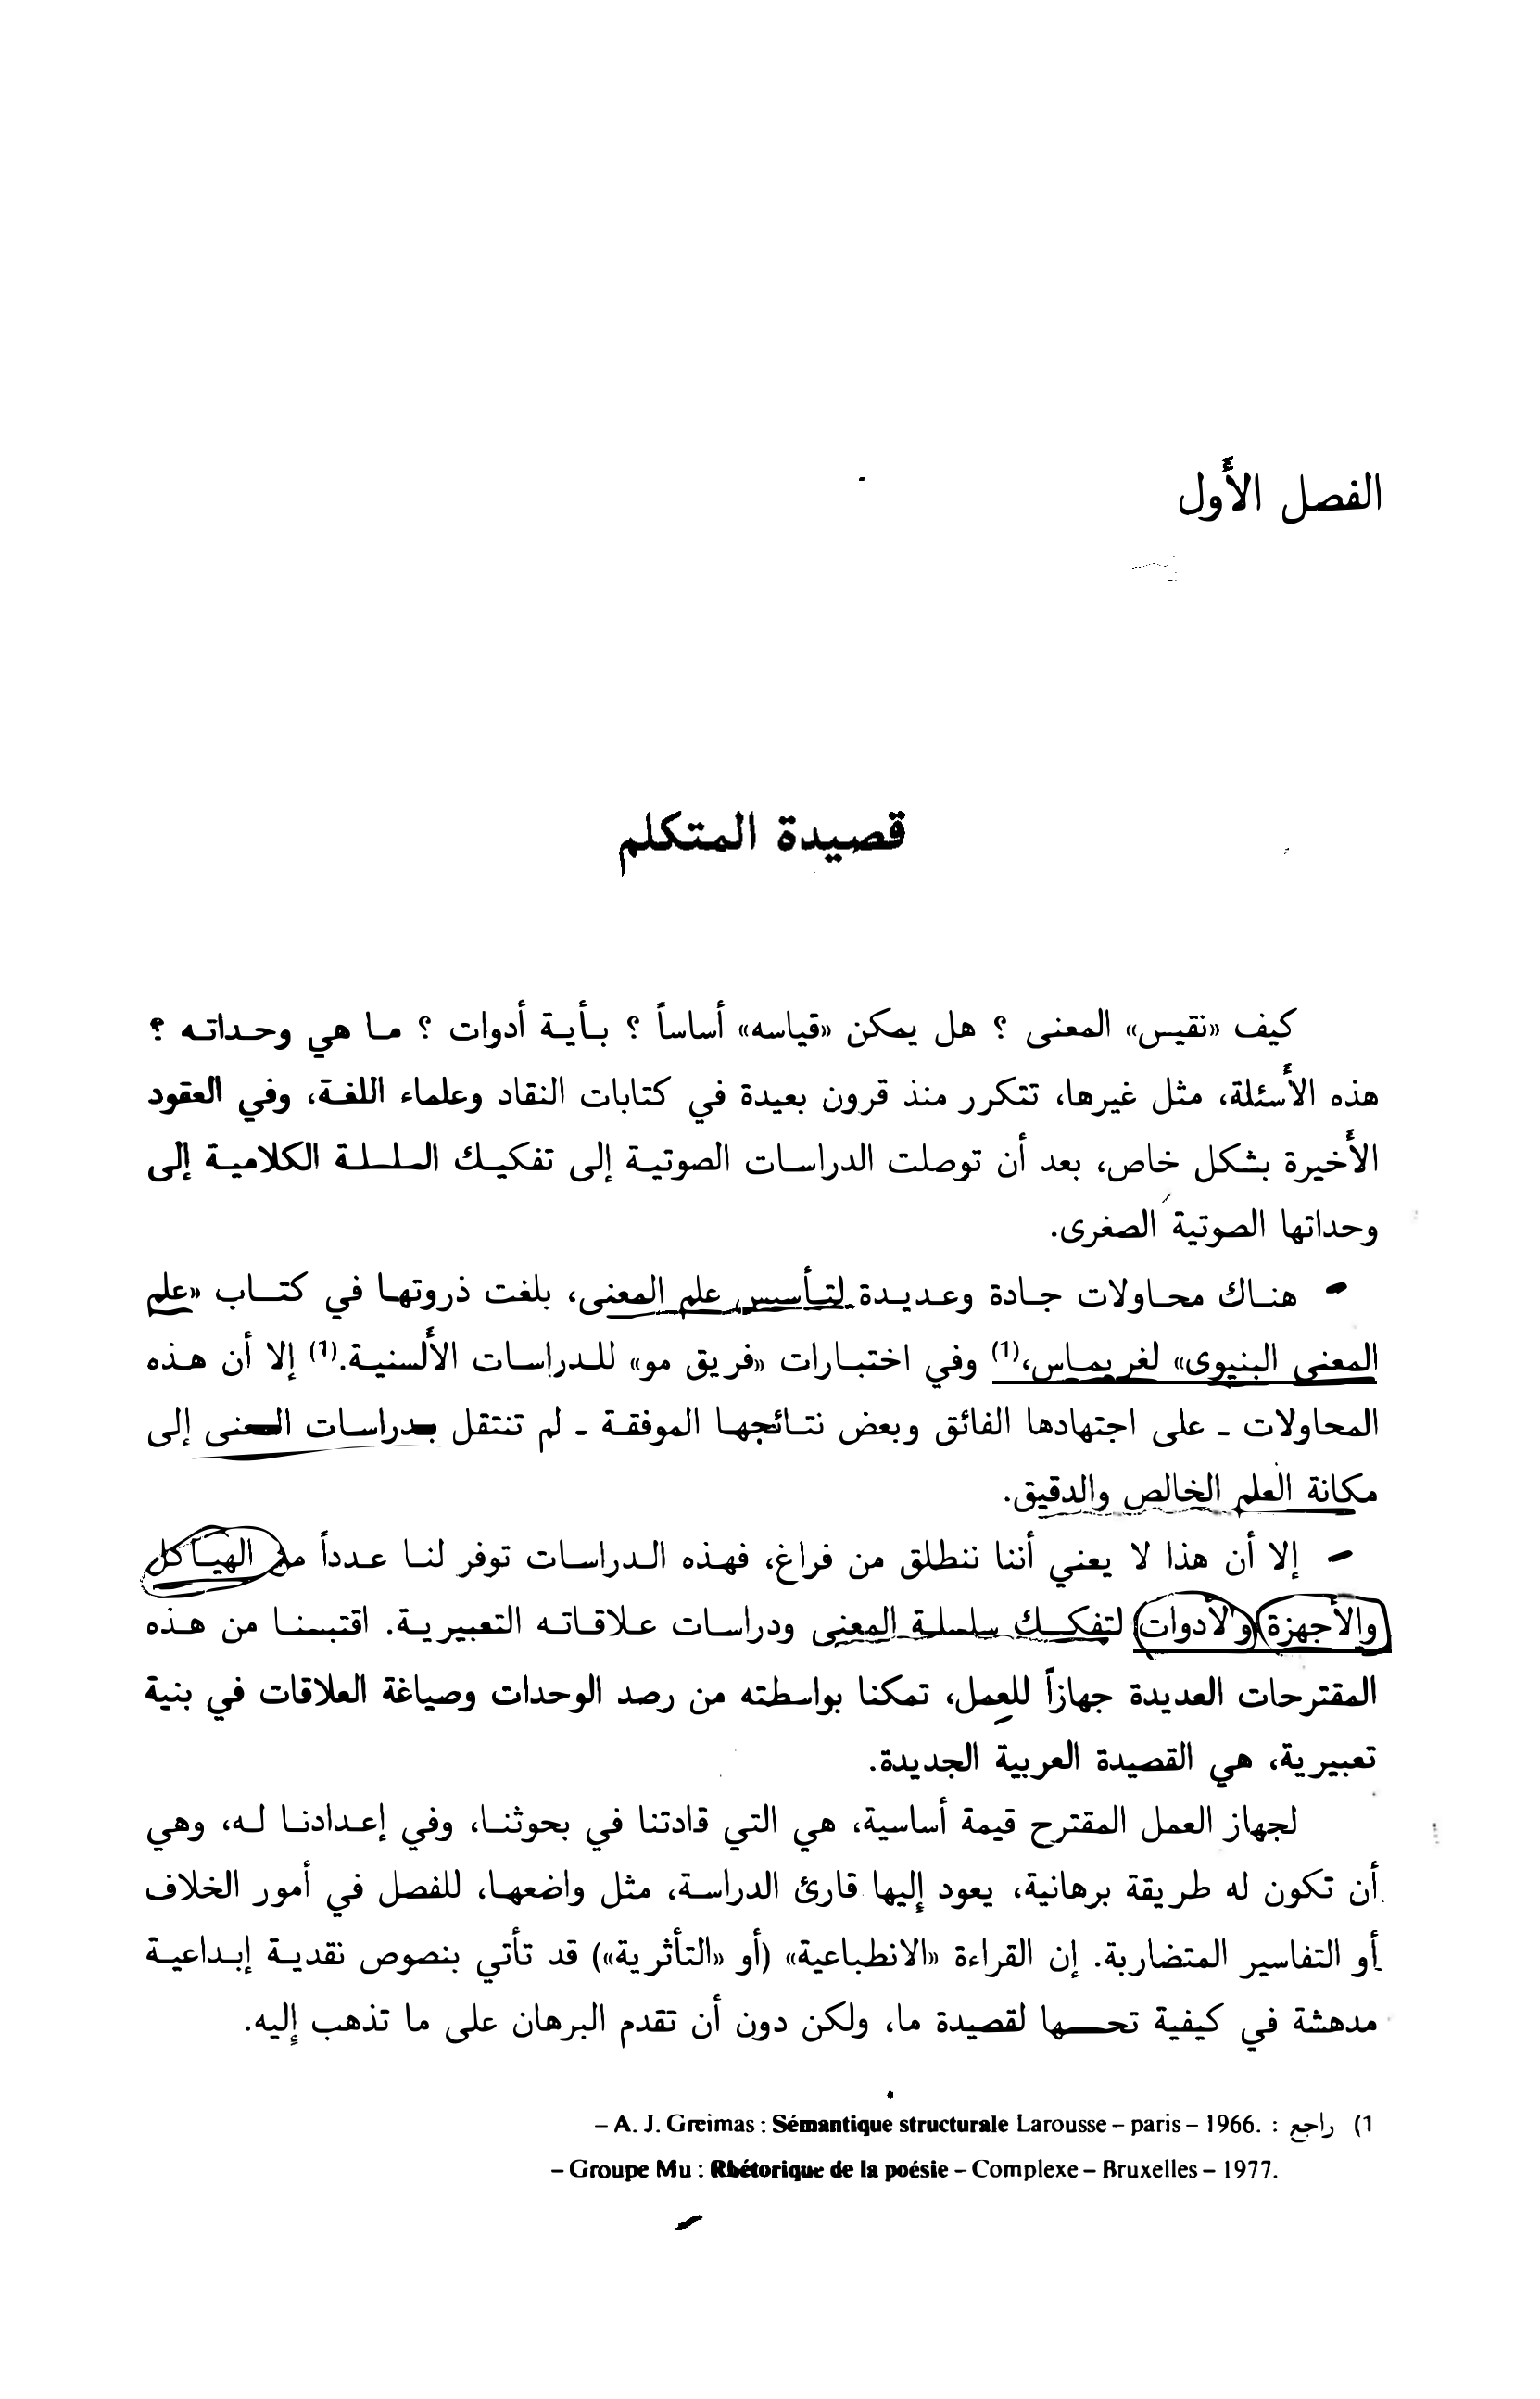 الفصل الأول
قصيدة المتكلم
كيف «نقيس» المعنى ؟ هل يمكن «قياسه» أساساً ؟ بأية أدوات ؟ ما هي وحداته ؟
هذه الأسئلة، مثل غيرها، تتكرر منذ قرون بعيدة في كتابات النقاد وعلماء اللغة، وفي العقود
الأخيرة بشكل خاص، بعد أن توصلت الدراسات الصوتية إلى تفكيك السلسلة الكلامية إلى
وحداتها الصوتية الصغرى.
هناك محاولات جادة وعديدة لتأسيس علم المعنى، بلغت ذروتها في كتاب «علم
المعنى البنيوي» لغريماس،(1) وفي اختبارات «فريق مو» للدراسات الألسنية.(1) إلا أن هذه
المحاولات ـ على اجتهادها الفائق وبعض نتائجها الموفقة ـ لم تنتقل بدراسات المعنى إلى
مكانة العلم الخالص والدقيق.
إلا أن هذا لا يعني أننا ننطلق من فراغ، فهذه الدراسات توفر لنا عدداً من الهياكل
والأجهزة والأدوات لتفكيك سلسلة المعنى ودراسات علاقاته التعبيرية. اقتبسنا من هذه
المقترحات العديدة جهازاً للعمل، تمكنا بواسطته من رصد الوحدات وصياغة العلاقات في بنية
تعبيرية، هي القصيدة العربية الجديدة.
لجهاز العمل المقترح قيمة أساسية، هي التي قادتنا في بحوثنا، وفي إعدادنا له، وهي
أن تكون له طريقة برهانية، يعود إليها قارئ الدراسة، مثل واضعها، للفصل في أمور الخلاف
أو التفاسير المتضاربة. إن القراءة «الانطباعية» (أو «التأثرية») قد تأتي بنصوص نقدية إبداعية
مدهشة في كيفية تحسها لقصيدة ما، ولكن دون أن تقدم البرهان على ما تذهب إليه.
1) راجع : – A. J. Greimas : Sémantique structurale Larousse – paris – 1966.
– Groupe Mu : Rhétorique de la poésie – Complexe – Bruxelles – 1977.